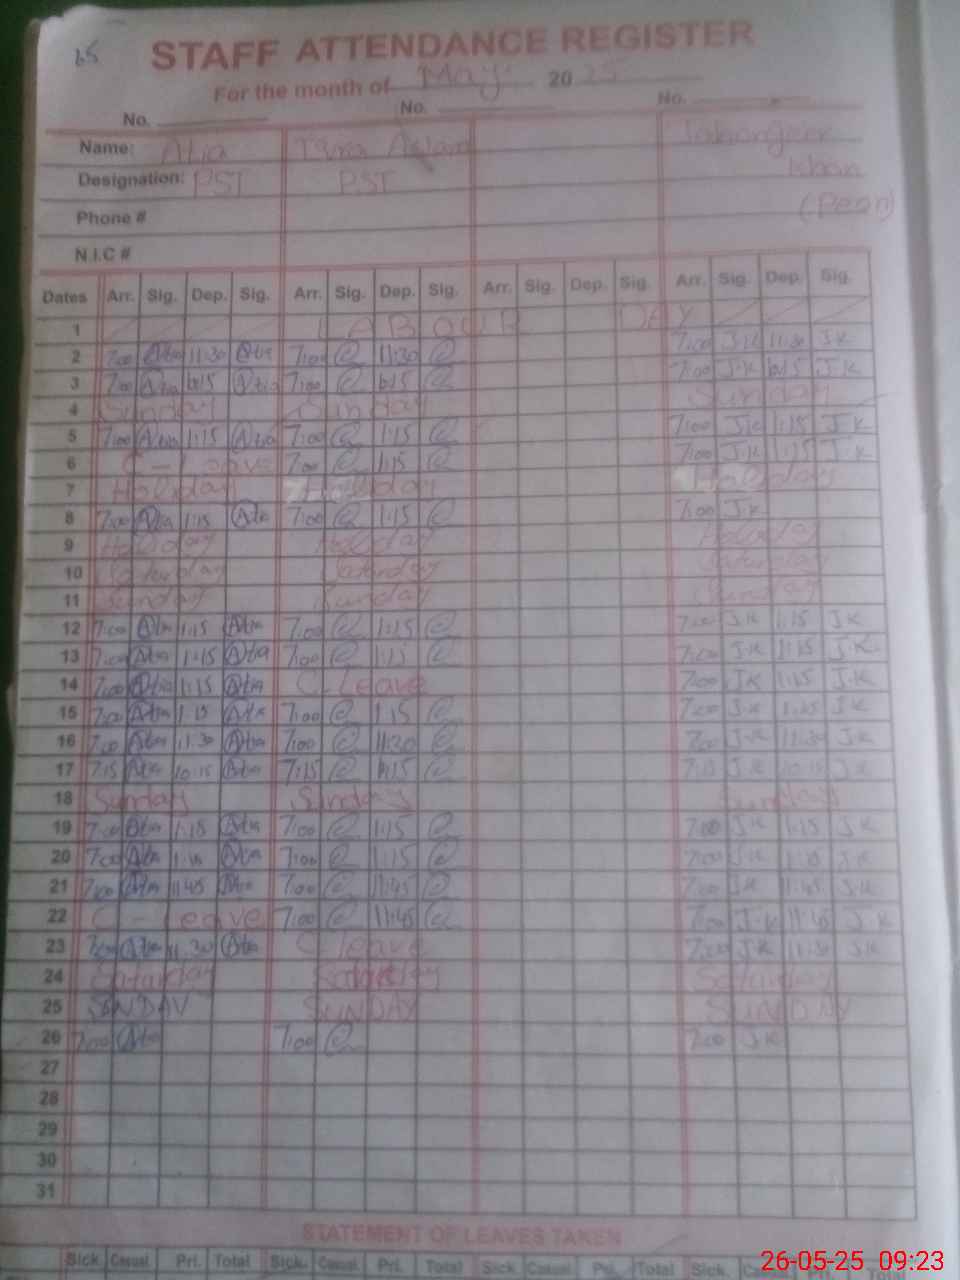 65
STAFF ATTENDANCE REGISTER
For the month of May 20 25
No. No. No.
Name: Atia Aslam
Designation: PST PST Khan
Phone # (Peon)
N.I.C #
Dates Arr. Sig. Dep. Sig. Arr. Sig. Dep. Sig. Arr. Sig. Dep. Sig. Arr. Sig. Dep. Sig.
1 LABOUR DAY
2 7:00 Atia 11:30 Atia 7:00 11:30 7:00 J.K 11:30 J.K
3 7:00 Atia Atia 7:00 7:00 J.K J.K
4 Sunday Sunday Sunday
5 7:00 Atia 1:15 Atia 7:00 1:15 7:00 J.K 1:15 J.K
6 C-Leave 7:00 1:15 7:00 J.K 1:15 J.K
7 Holiday Holiday Holiday
8 7:00 Atia 1:15 Atia 7:00 1:15 7:00 J.K
9 Holiday Holiday Holiday
10 Saturday Saturday Saturday
11 Sunday Sunday Sunday
12 7:00 Atia 1:15 Atia 7:00 1:15 7:00 J.K 1:15 J.K
13 7:00 Atia 1:15 Atia 7:00 1:15 7:00 J.K 1:15 J.K
14 7:00 Atia 1:15 Atia C.Leave 7:00 J.K 1:15 J.K
15 7:00 Atia 1:15 Atia 7:00 1:15 7:00 J.K 1:15 J.K
16 7:00 Atia 11:30 Atia 7:00 11:30 7:00 J.K 11:30 J.K
17 7:15 Atia 10:15 Atia 7:15 7:15 J.K 10:15 J.K
18 Sunday Sunday Sunday
19 7:00 Atia 1:15 Atia 7:00 1:15 7:00 J.K 1:15 J.K
20 7:00 Atia 1:15 Atia 7:00 1:15 7:00 J.K 1:15 J.K
21 7:00 Atia 11:45 Atia 7:00 11:45 7:00 J.K 11:45 J.K
22 C-Leave 7:00 11:45 7:00 J.K 11:45 J.K
23 7:00 Atia 11:30 Atia C.leave 7:00 J.K 11:30 J.K
24 Saturday Saturday Saturday
25 SUNDAY SUNDAY SUNDAY
26 7:00 Atia 7:00 7:00 J.K
27
28
29
30
31
STATEMENT OF LEAVES TAKEN
Sick Casual Pri. Total Sick. Casual. Pri. Total Sick Casual Pri. Total Sick.
26-05-25 09:23